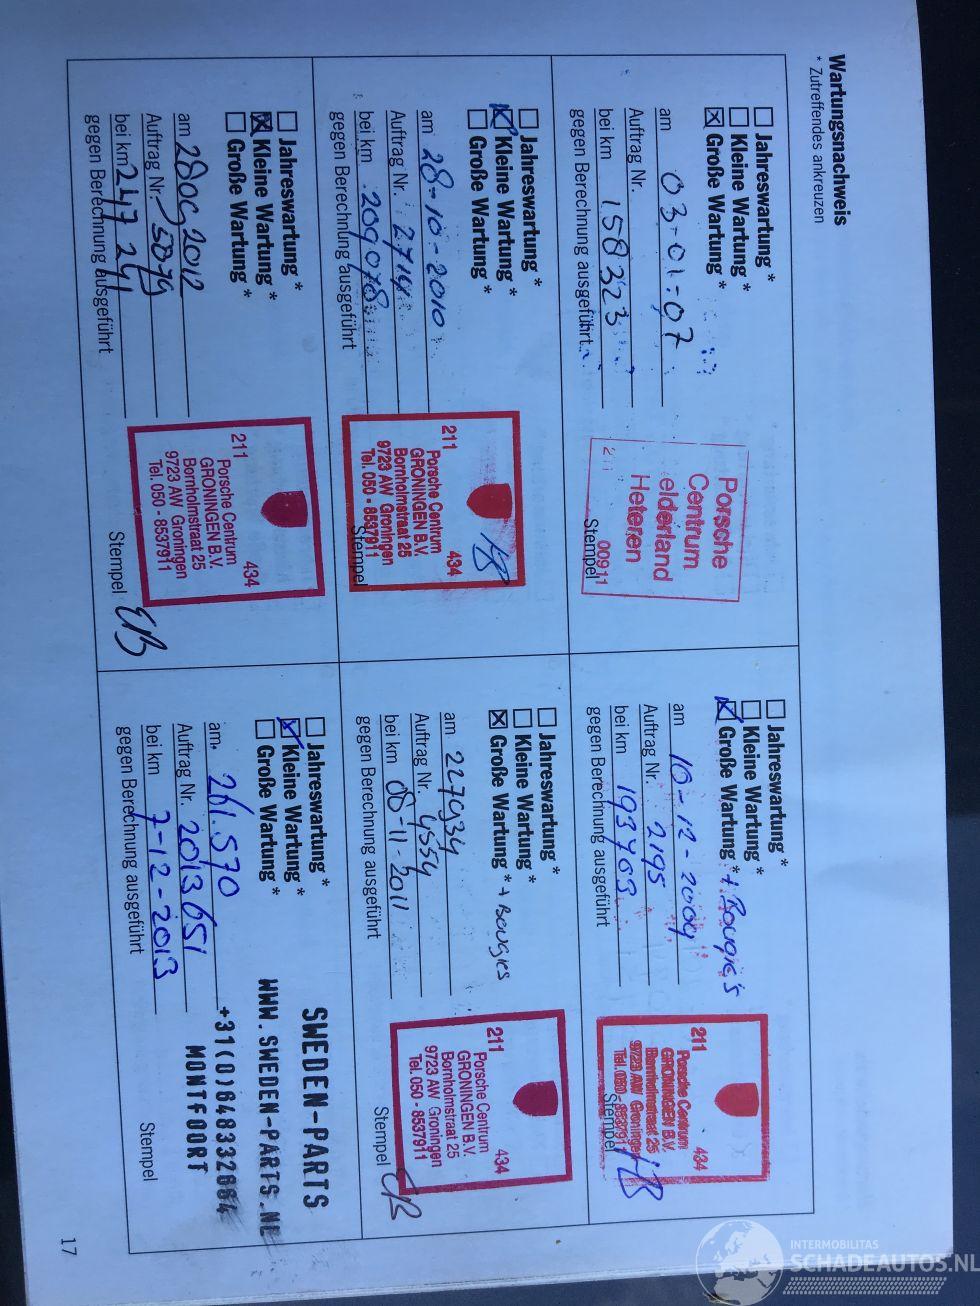 Wartungsnachweis
* Zutreffendes ankreuzen
Jahreswartung *
Kleine Wartung *
Große Wartung *
am 03-01-07
Auftrag Nr.
bei km 158323
gegen Berechnung ausgeführt
Porsche
Centrum
elderland
Heteren
00911
Stempel
Jahreswartung *
Kleine Wartung *
Große Wartung * + Bougie's
am 10-12-2009
Auftrag Nr. 2195
bei km 193703
gegen Berechnung ausgeführt
211 434
Porsche Centrum
GRONINGEN B.V.
Bornholmstraat 25
9723 AW Groningen
Tel. 050 - 8537911
Stempel
Jahreswartung *
Kleine Wartung *
Große Wartung *
am 28-10-2010
Auftrag Nr. 2714
bei km 209078
gegen Berechnung ausgeführt
211 434
Porsche Centrum
GRONINGEN B.V.
Bornholmstraat 25
9723 AW Groningen
Tel. 050 - 8537911
Stempel
Jahreswartung *
Kleine Wartung *
Große Wartung * + Bougies
am 227934
Auftrag Nr. 4554
bei km 08-11-2011
gegen Berechnung ausgeführt
211 434
Porsche Centrum
GRONINGEN B.V.
Bornholmstraat 25
9723 AW Groningen
Tel. 050 - 8537911
Stempel
Jahreswartung *
Kleine Wartung *
Große Wartung *
am 28 2012
Auftrag Nr. 5879
bei km 247241
gegen Berechnung ausgeführt
211 434
Porsche Centrum
GRONINGEN B.V.
Bornholmstraat 25
9723 AW Groningen
Tel. 050 - 8537911
Stempel
Jahreswartung *
Kleine Wartung *
Große Wartung *
am 261.570
Auftrag Nr. 2013651
bei km 7-12-2013
gegen Berechnung ausgeführt
SWEDEN-PARTS
WWW.SWEDEN-PARTS.NL
+31(0)648332684
MONTFOORT
Stempel
17
INTERMOBILITAS
SCHADEAUTOS.NL